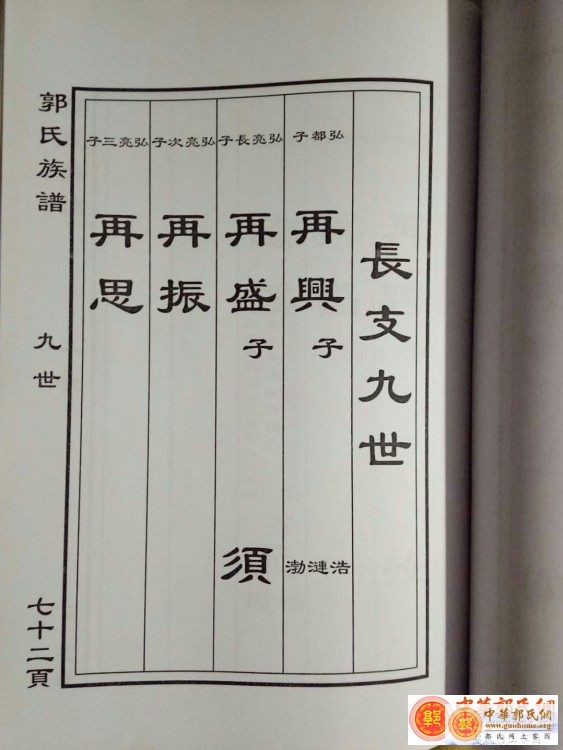 長支九世
弘都子
再興 子
浩漣渤
弘亮長子
再盛 子
須
弘亮次子
再振
弘亮三子
再思
郭氏族譜
九世
七十二頁
中華郭氏網
www.guohome.org
郭氏網上家園